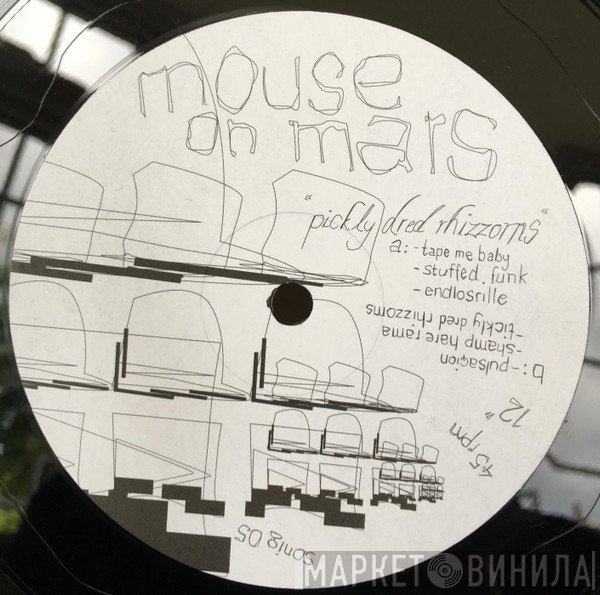 mouse
on mars
"pickly dred rhizzoms"
a: - tape me baby
- stuffed funk
- endlosrille
b: - pulsagion
- shamp hare rama
- tickly dred rhizzoms
12"
45 rpm
sonig 05
МАРКЕТ ВИНИЛА